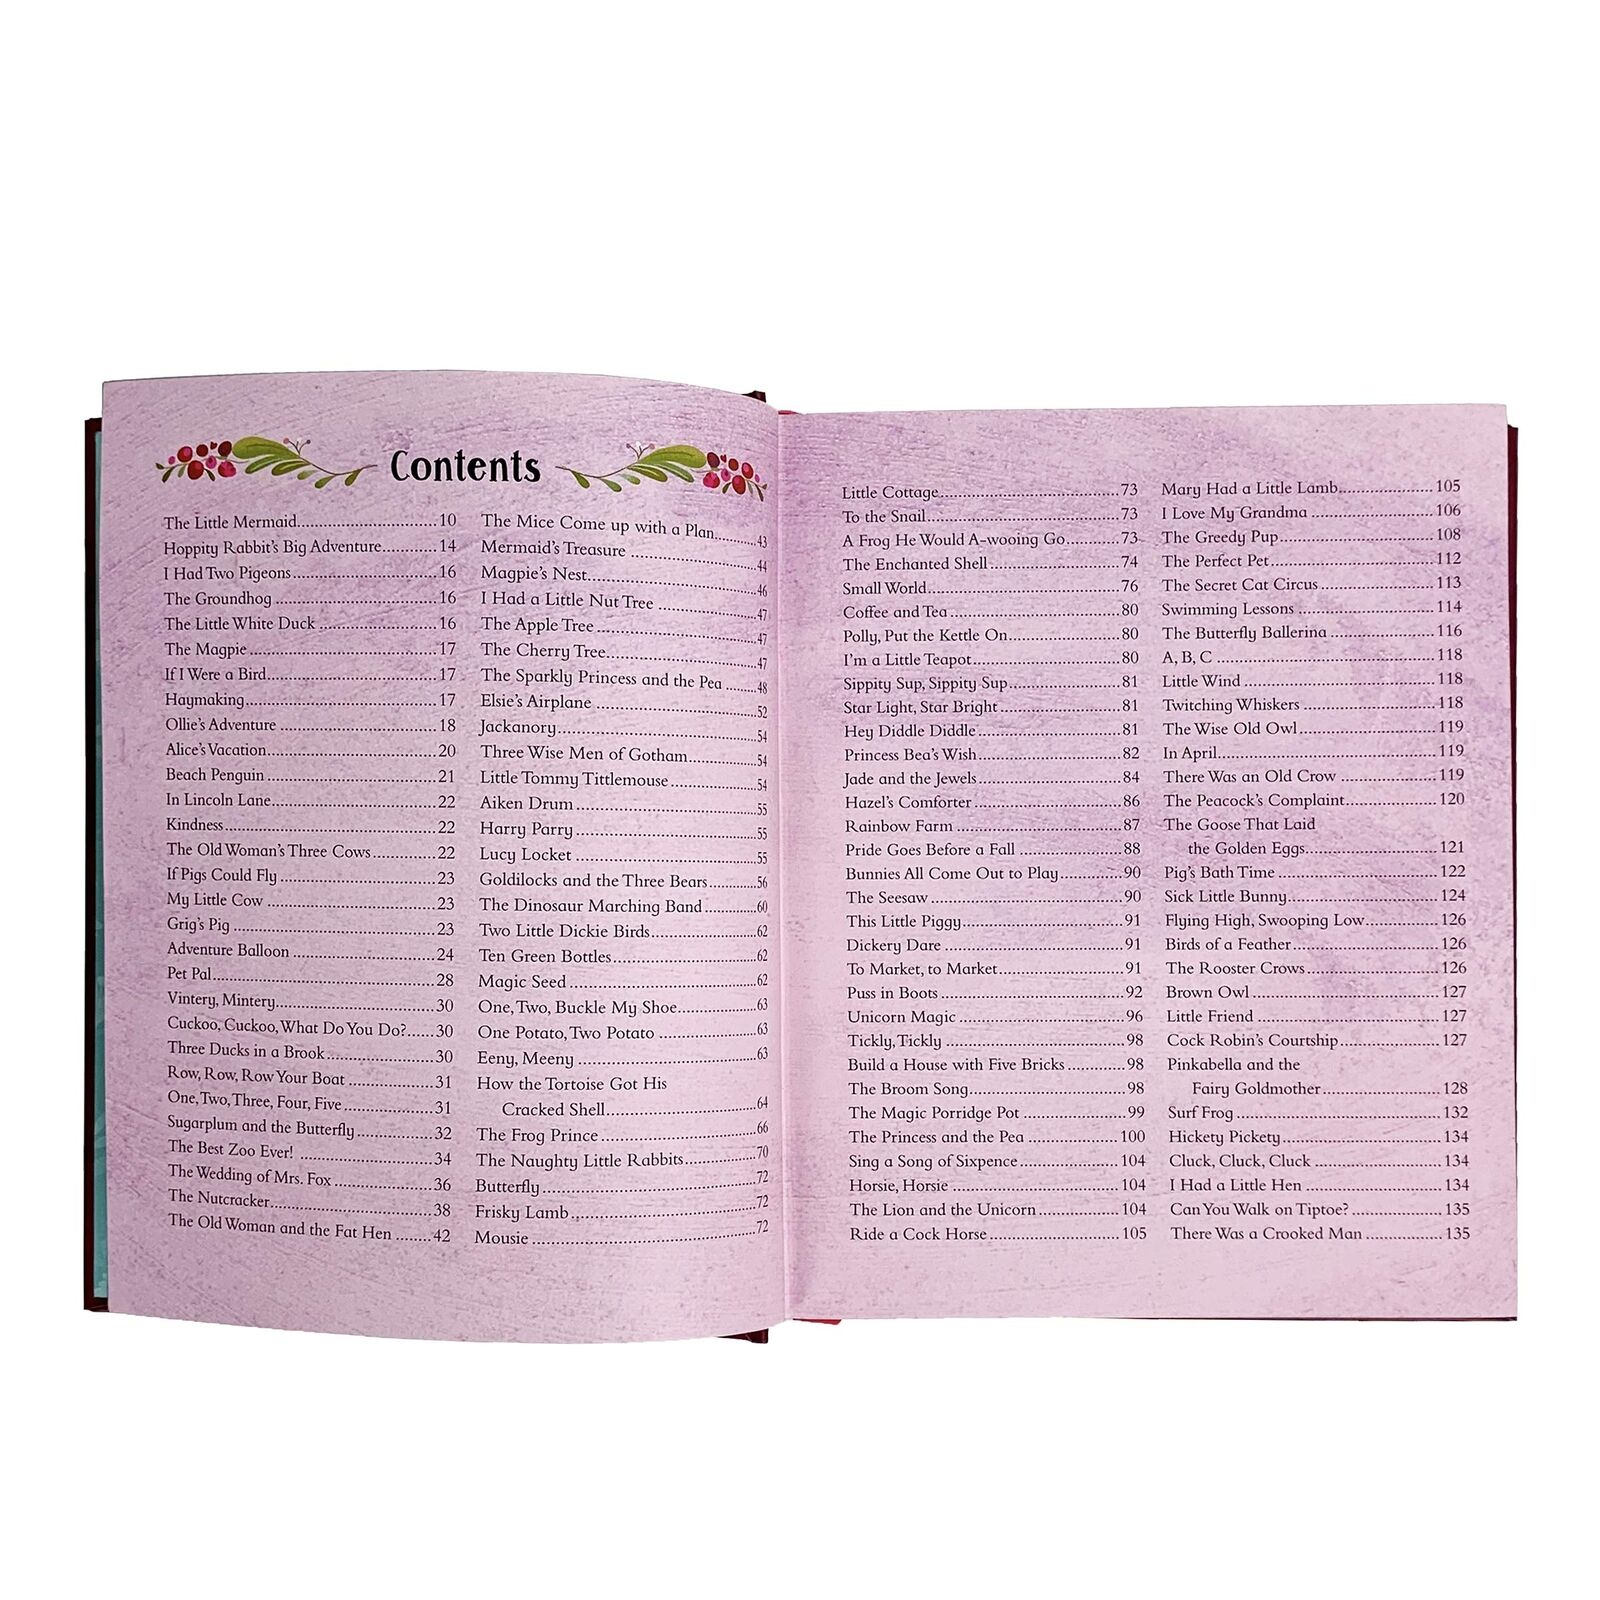 Contents
The Little Mermaid..............................10
Hoppity Rabbit's Big Adventure............14
I Had Two Pigeons..............................16
The Groundhog..................................16
The Little White Duck..........................16
The Magpie........................................17
If I Were a Bird...................................17
Haymaking.........................................17
Ollie's Adventure.................................18
Alice's Vacation...................................20
Beach Penguin....................................21
In Lincoln Lane...................................22
Kindness............................................22
The Old Woman's Three Cows..............22
If Pigs Could Fly..................................23
My Little Cow.....................................23
Grig's Pig...........................................23
Adventure Balloon...............................24
Pet Pal...............................................28
Vintery, Mintery..................................30
Cuckoo, Cuckoo, What Do You Do?......30
Three Ducks in a Brook........................30
Row, Row, Row Your Boat...................31
One, Two, Three, Four, Five..................31
Sugarplum and the Butterfly.................32
The Best Zoo Ever!..............................34
The Wedding of Mrs. Fox.....................36
The Nutcracker...................................38
The Old Woman and the Fat Hen........42
The Mice Come up with a Plan..........43
Mermaid's Treasure.............................44
Magpie's Nest.....................................46
I Had a Little Nut Tree.........................47
The Apple Tree....................................47
The Cherry Tree..................................47
The Sparkly Princess and the Pea.......48
Elsie's Airplane...................................52
Jackanory...........................................54
Three Wise Men of Gotham.................54
Little Tommy Tittlemouse....................54
Aiken Drum........................................55
Harry Parry........................................55
Lucy Locket........................................55
Goldilocks and the Three Bears............56
The Dinosaur Marching Band.............60
Two Little Dickie Birds.........................62
Ten Green Bottles................................62
Magic Seed.........................................62
One, Two, Buckle My Shoe...................63
One Potato, Two Potato.......................63
Eeny, Meeny.......................................63
How the Tortoise Got His
Cracked Shell......................................64
The Frog Prince..................................66
The Naughty Little Rabbits..................70
Butterfly.............................................72
Frisky Lamb........................................72
Mousie...............................................72
Little Cottage......................................73
To the Snail........................................73
A Frog He Would A-wooing Go...........73
The Enchanted Shell............................74
Small World........................................76
Coffee and Tea....................................80
Polly, Put the Kettle On........................80
I'm a Little Teapot...............................80
Sippity Sup, Sippity Sup.......................81
Star Light, Star Bright..........................81
Hey Diddle Diddle...............................81
Princess Bea's Wish..............................82
Jade and the Jewels..............................84
Hazel's Comforter................................86
Rainbow Farm.....................................87
Pride Goes Before a Fall.......................88
Bunnies All Come Out to Play.............90
The Seesaw.........................................90
This Little Piggy..................................91
Dickery Dare.......................................91
To Market, to Market..........................91
Puss in Boots.......................................92
Unicorn Magic....................................96
Tickly, Tickly.......................................98
Build a House with Five Bricks.............98
The Broom Song..................................98
The Magic Porridge Pot........................99
The Princess and the Pea...................100
Sing a Song of Sixpence.....................104
Horsie, Horsie...................................104
The Lion and the Unicorn..................104
Ride a Cock Horse.............................105
Mary Had a Little Lamb....................105
I Love My Grandma..........................106
The Greedy Pup.................................108
The Perfect Pet...................................112
The Secret Cat Circus.........................113
Swimming Lessons.............................114
The Butterfly Ballerina.......................116
A, B, C..............................................118
Little Wind........................................118
Twitching Whiskers............................118
The Wise Old Owl..............................119
In April.............................................119
There Was an Old Crow.....................119
The Peacock's Complaint....................120
The Goose That Laid
the Golden Eggs.................................121
Pig's Bath Time..................................122
Sick Little Bunny................................124
Flying High, Swooping Low................126
Birds of a Feather..............................126
The Rooster Crows.............................126
Brown Owl........................................127
Little Friend......................................127
Cock Robin's Courtship......................127
Pinkabella and the
Fairy Goldmother...............................128
Surf Frog...........................................132
Hickety Pickety..................................134
Cluck, Cluck, Cluck...........................134
I Had a Little Hen..............................134
Can You Walk on Tiptoe?...................135
There Was a Crooked Man.................135